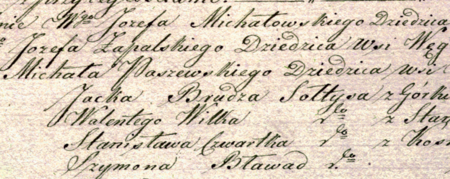 nie Wgo Jozefa Michałowskiego Dziedzica
Jozefa Zapalskiego Dziedzica wsi Węg
Michała Paszewskiego Dziedzica wsi
Jacka Brudza Sołtysa z Gorki
Walentego Wilka z Star
Stanisława Czwartka z Kosm
Szymona Bławad